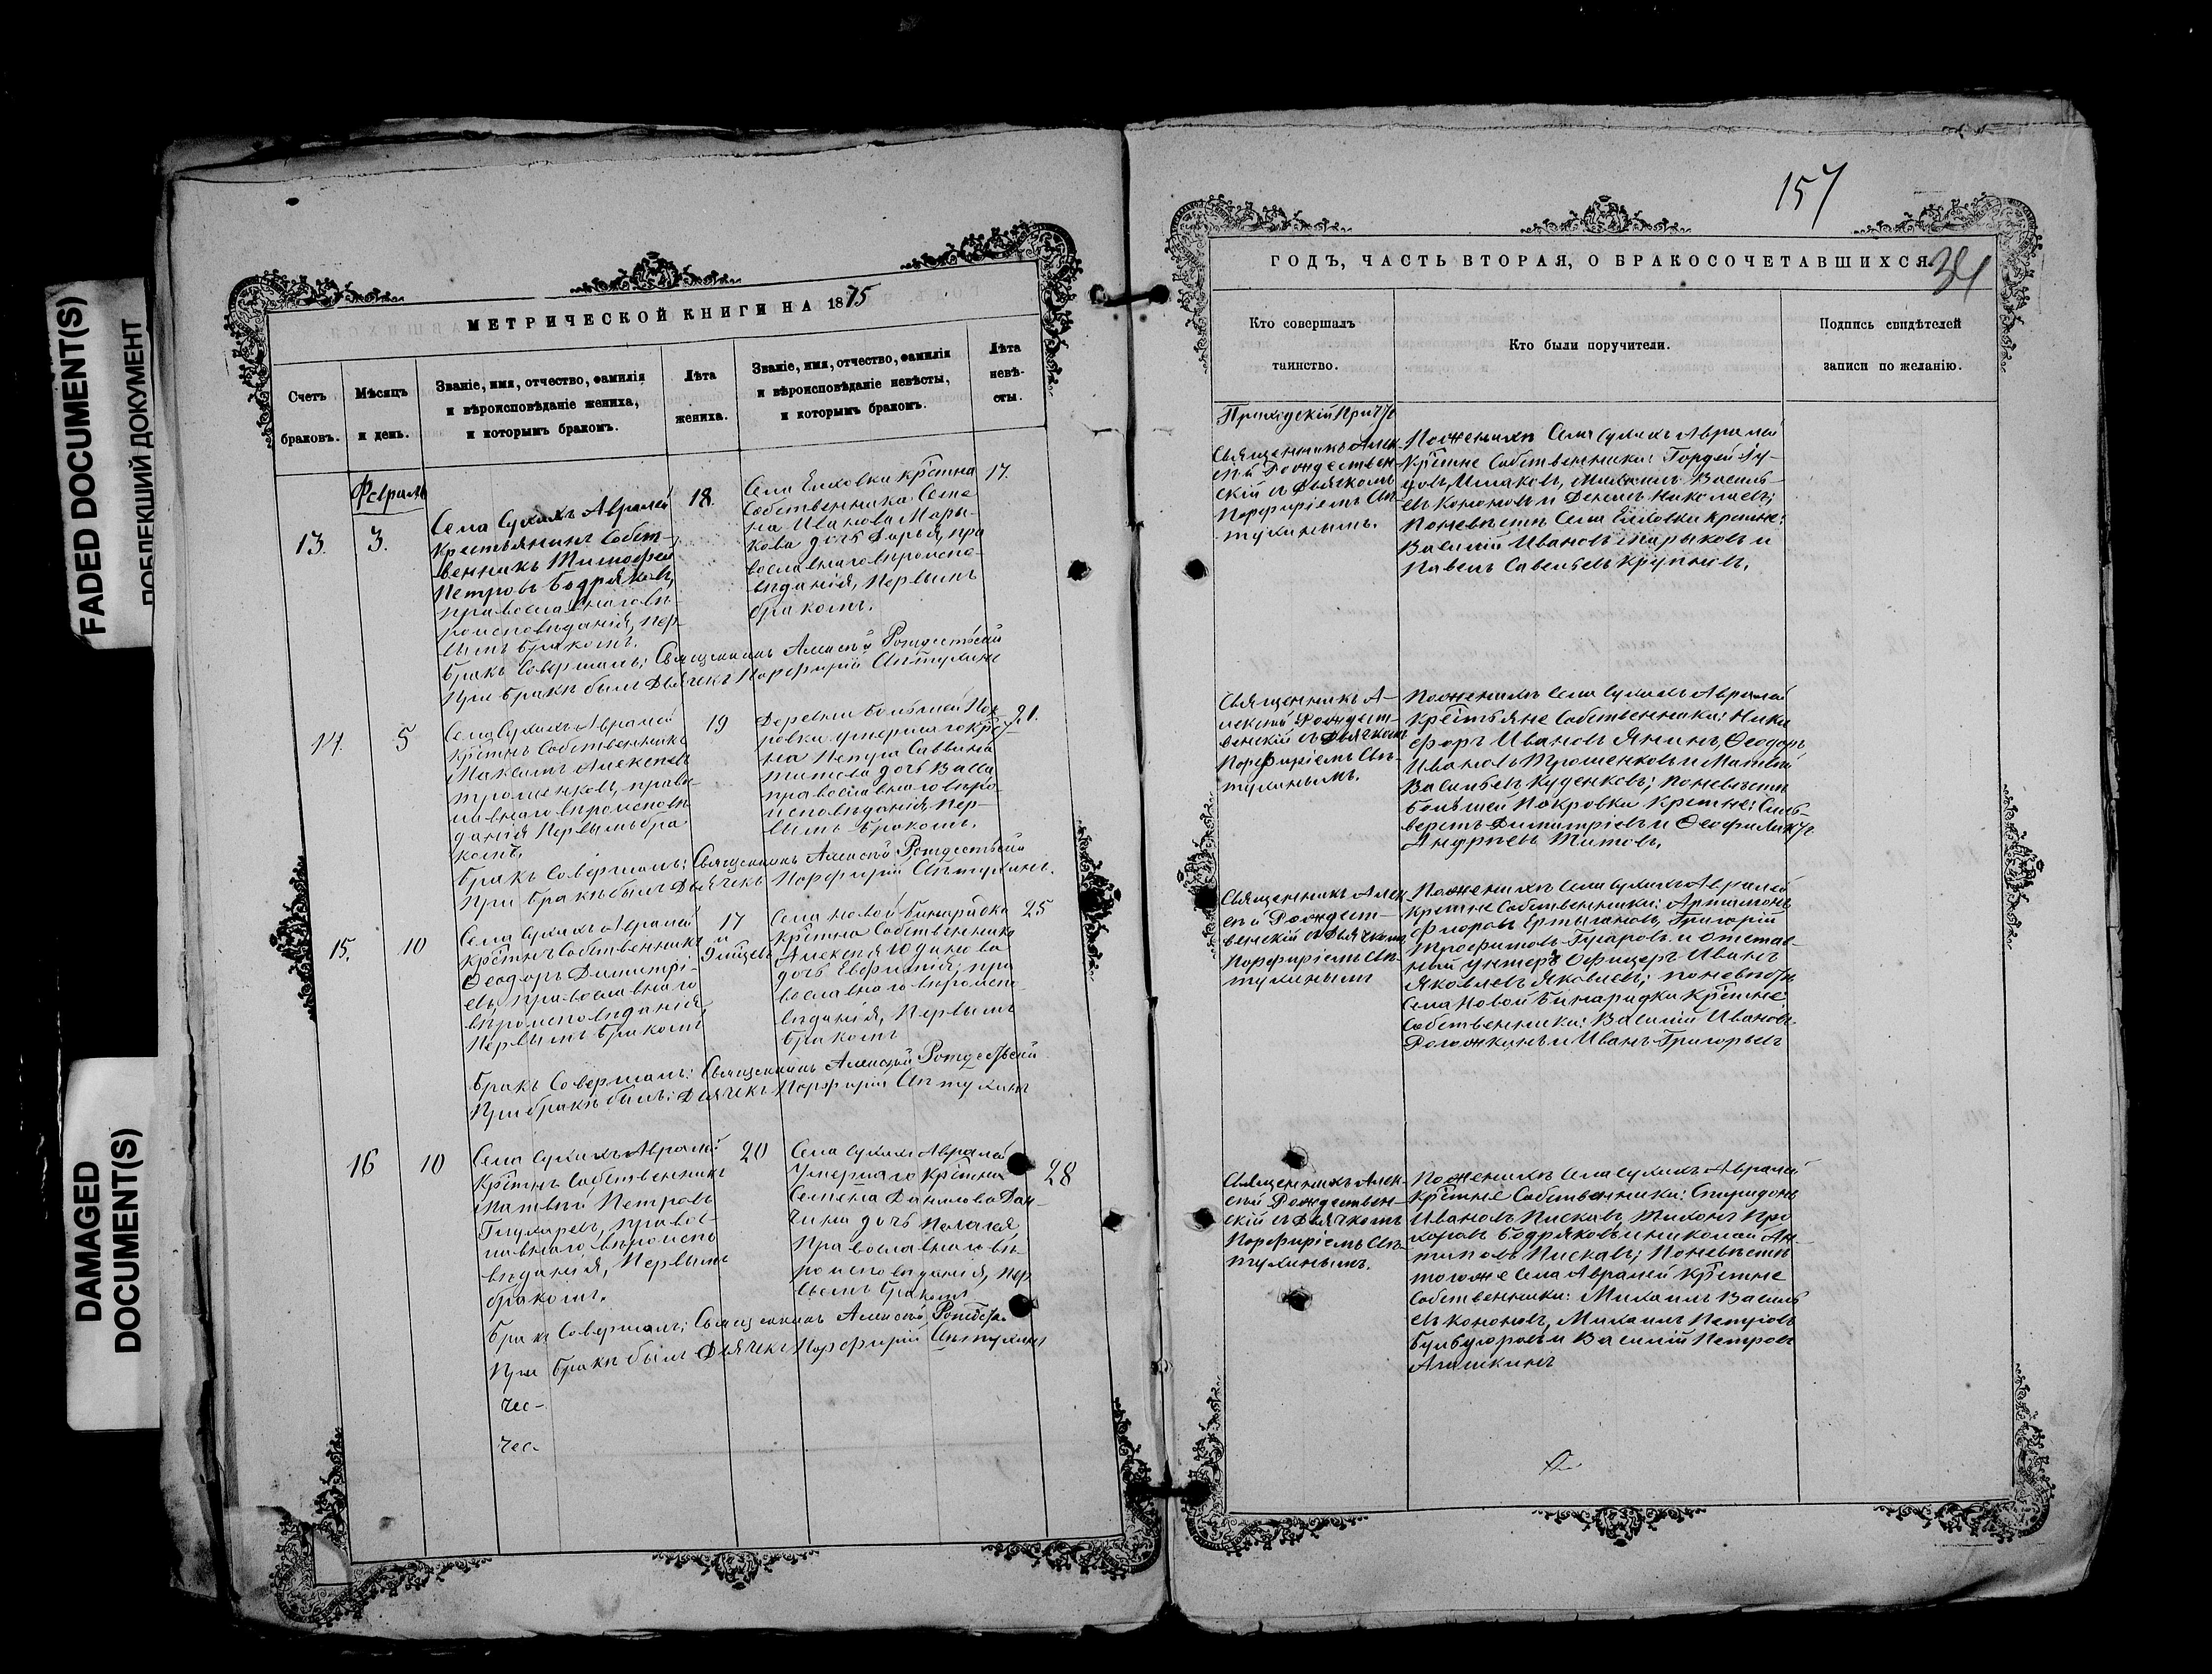 FADED DOCUMENT(S)
ПОБЛЕКШИЙ ДОКУМЕНТ
DAMAGED
DOCUMENT(S)
МЕТРИЧЕСКОЙ КНИГИ НА 1875
Счетъ
браковъ.
Мѣсяцъ
и день.
Званіе, имя, отчество, фамилія
и вѣроисповѣданіе жениха,
и которымъ бракомъ.
Лѣта
жениха.
Званіе, имя, отчество, фамилія
и вѣроисповѣданіе невѣсты,
и которымъ бракомъ.
Лѣта
невѣ-
сты.
Февраль
13.
3.
Села Сухихъ Авралей
Крестьянинъ Собст-
венникъ Тимофей
Петровъ Бодряковъ,
православнаго вѣ-
роисповѣданія, пер-
вымъ бракомъ.
18.
Села Елховки крѣтна
Собственника Семе-
на Иванова Мары-
кова дочь Дарья, пра
вославнаго вѣроиспо-
вѣданія, первымъ
бракомъ.
17.
Бракъ Совершалъ: Священникъ Алексѣй Рождественскій
При бракѣ былъ Дьячекъ Порфирій Аптухинъ
14.
5
Села Сухихъ Авралей
крѣтнъ Собственникъ
Максимъ Алексѣевъ
Трошенковъ, право-
славнаго вѣроисповѣ
данія первымъ бра
комъ.
19
Деревни Большой Пок
ровки умершаго крѣт-
на Петра Саввина
Титова дочь Васса
православнаго вѣро
исповѣданія, пер-
вымъ бракомъ.
21.
Бракъ Совершалъ: Священникъ Алексѣй Рождественскій
При бракѣ былъ Дьячекъ Порфирій Аптухинъ.
15.
10
Села Сухихъ Авралей
крѣтнъ Собственникъ
Ѳеодоръ Димитрі-
евъ, православнаго
вѣроисповѣданія,
первымъ бракомъ
17
и
9 мѣсяцевъ
Села Новой Бинарадки
крѣтна Собственника
Алексѣя Юданова
дочь Евфимія, пра
вославнаго вѣроиспо-
вѣданія, первымъ
бракомъ
25
Бракъ Совершалъ: Священникъ Алексѣй Рождественскій
При бракѣ былъ: Дьячекъ Порфирій Аптухинъ
16
10
Села Сухихъ Авралей
крѣтнъ Собственникъ
Матвѣй Петровъ
Глухаревъ, правос-
лавнаго вѣроиспо
вѣданія, первымъ
бракомъ.
20
Села Сухихъ Авралей
умершаго крѣтна
Семена Данилова
дочь Пелагея
православнаго вѣ-
роисповѣданія, пер
вымъ бракомъ
28
Бракъ Совершалъ: Священникъ Алексѣй
При бракѣ былъ Дьячекъ Порфирій Аптухинъ
157
34
ГОДЪ, ЧАСТЬ ВТОРАЯ, О БРАКОСОЧЕТАВШИХСЯ.
Кто совершалъ
таинство.
Кто были поручители.
Подпись свидѣтелей
записи по желанію.
Приходскій Причтъ
Священникъ Алек-
сѣй Рождествен-
скій съ Дьячкомъ
Порфиріемъ Ап-
тухинымъ.
По женихѣ Села Сухихъ Авралей
крѣтне Собственники: Гордей
Василь-
евъ Кононовъ и Денисъ Николаевъ;
по невѣстѣ Села Елховки крѣтне:
Василій Ивановъ Марыковъ и
Павелъ Савельевъ Крупновъ.
Священникъ А-
лексѣй Рождест-
венскій съ Дьячкомъ
Порфиріемъ Ап-
тухинымъ.
По женихѣ Села Сухихъ Авралей
крестьяне Собственники: Ники
форъ Ивановъ Янинъ, Ѳеодоръ
Ивановъ Трошенковъ и Матвѣй
Васильевъ Куденковъ; по невѣстѣ
Большой Покровки крѣтне: Силь-
верстъ Димитріевъ и Ѳеофилактъ
Андреевъ Титовъ.
Священникъ Алек
сѣй Рождест-
венскій съ Дьячкомъ
Порфиріемъ Ап-
тухинымъ
По женихѣ Села Сухихъ Авралей
крѣтне Собственники: Артамонъ
Флоровъ Григорій
Трофимовъ Гусаровъ и отстав-
ной унтеръ Офицеръ Иванъ
Яковлевъ Яковлевъ; по невѣстѣ
Села Новой Бинарадки крѣтне
Собственники: Василій Ивановъ
Рогожкинъ и Иванъ Григорьевъ
Священникъ Алек-
сѣй Рождествен-
скій съ Дьячкомъ
Порфиріемъ Ап-
тухинымъ.
По женихѣ Села Сухихъ Авралей
крѣтне Собственники: Спиридонъ
Ивановъ Пискавъ, Тихонъ Про
хоровъ Бодряковъ и Николай Ан-
типовъ Пискавъ; по невѣстѣ
тогоже Села Авралей крѣтне
Собственники: Михаилъ Василь
евъ Кононовъ, Михаилъ Петровъ
и Василій Петровъ
Агашкинъ